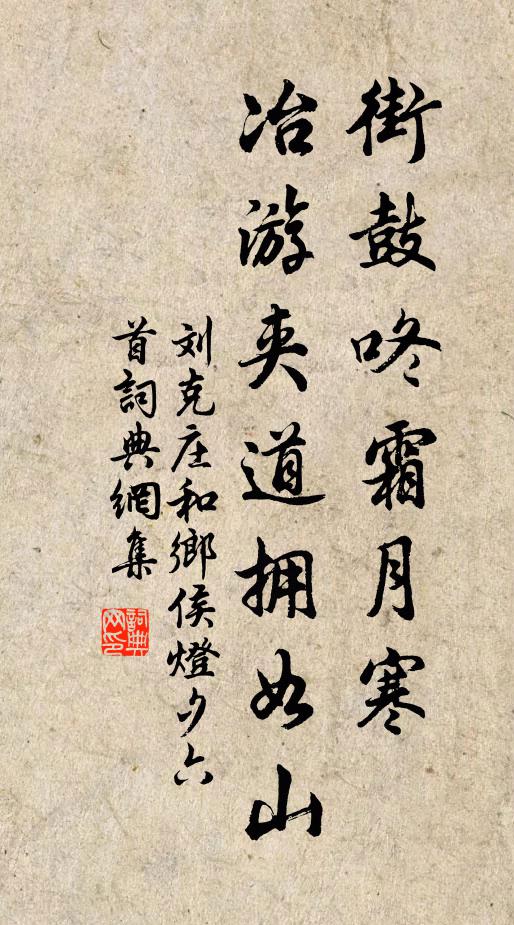 街鼓咚霜月寒
冶游夹道拥如山
刘克庄和鄉侯燈夕六
首詞典網集
詞典
网印